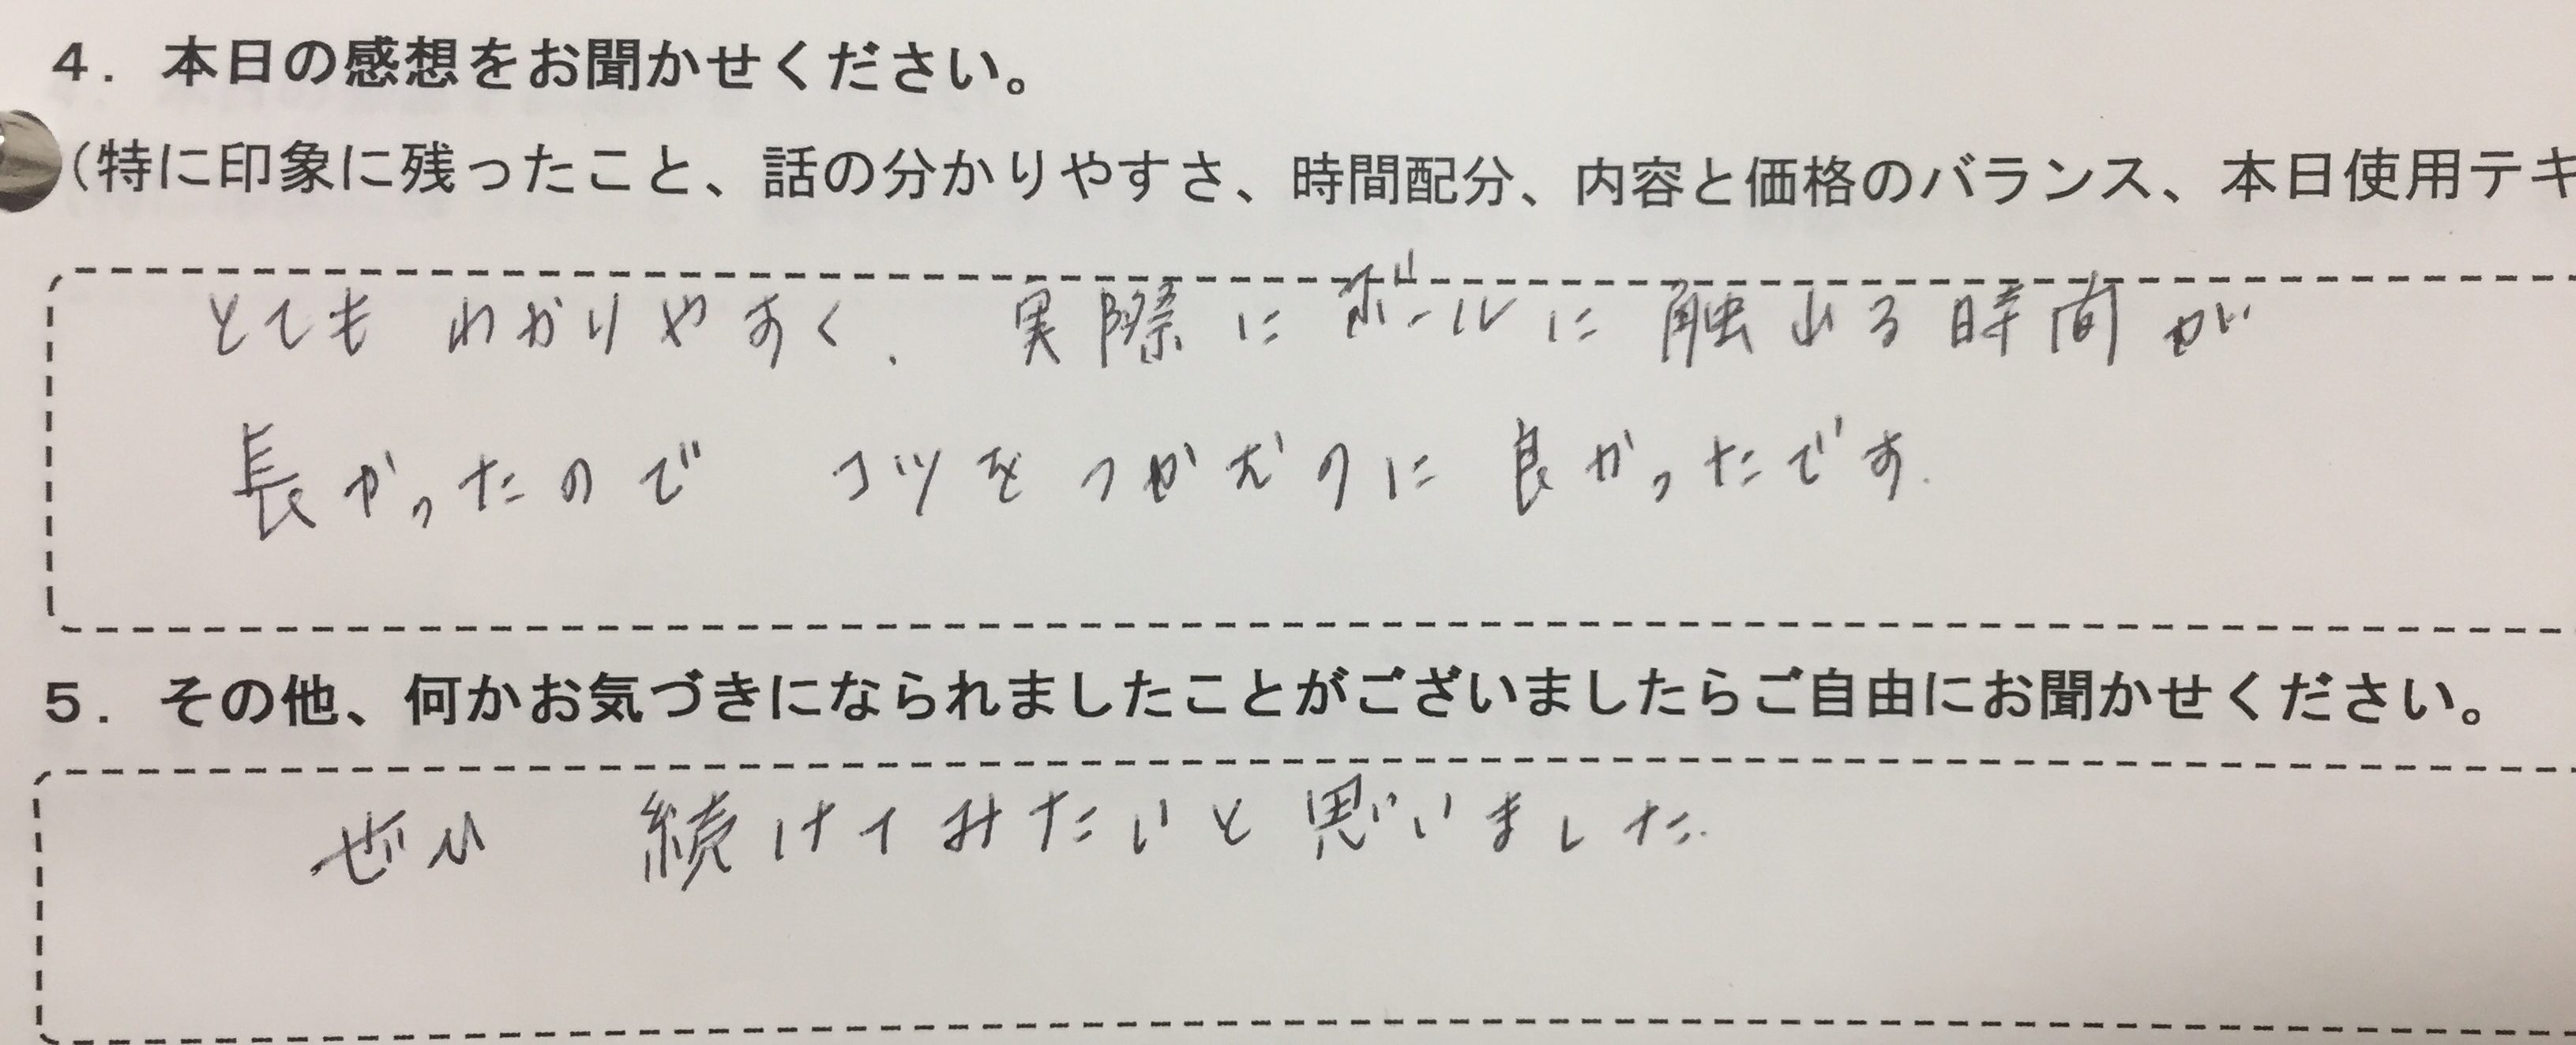 ４．本日の感想をお聞かせください。
（特に印象に残ったこと、話の分かりやすさ、時間配分、内容と価格のバランス、本日使用テキ
とても わかりやすく、 実際に ボールに 触れる時間が
長かったので コツをつかむのに 良かったです。
５．その他、何かお気づきになられましたことがございましたらご自由にお聞かせください。
ぜひ 続けてみたいと思いました。